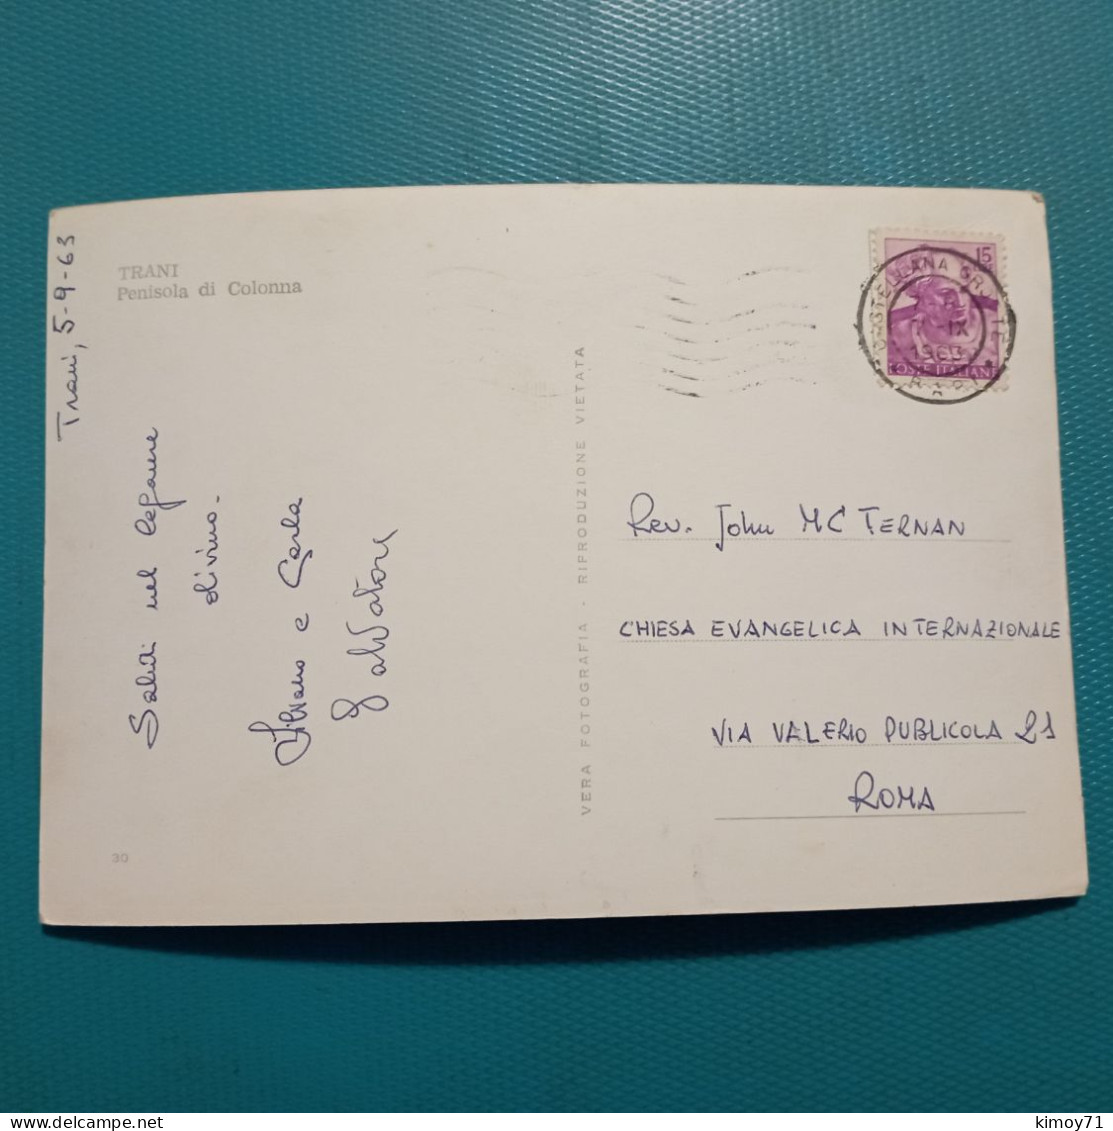 TRANI
Penisola di Colonna
Trani, 5-9-63
Saluti nel legame
divino.
Silvano e Carla
Salvatore
30
VERA FOTOGRAFIA - RIPRODUZIONE VIETATA
15
POSTE ITALIANE
CASTELLANA GROTTE
IX
1963
BARI
Rev. John MC TERNAN
CHIESA EVANGELICA INTERNAZIONALE
VIA VALERIO PUBLICOLA 21
ROMA
kimoy71